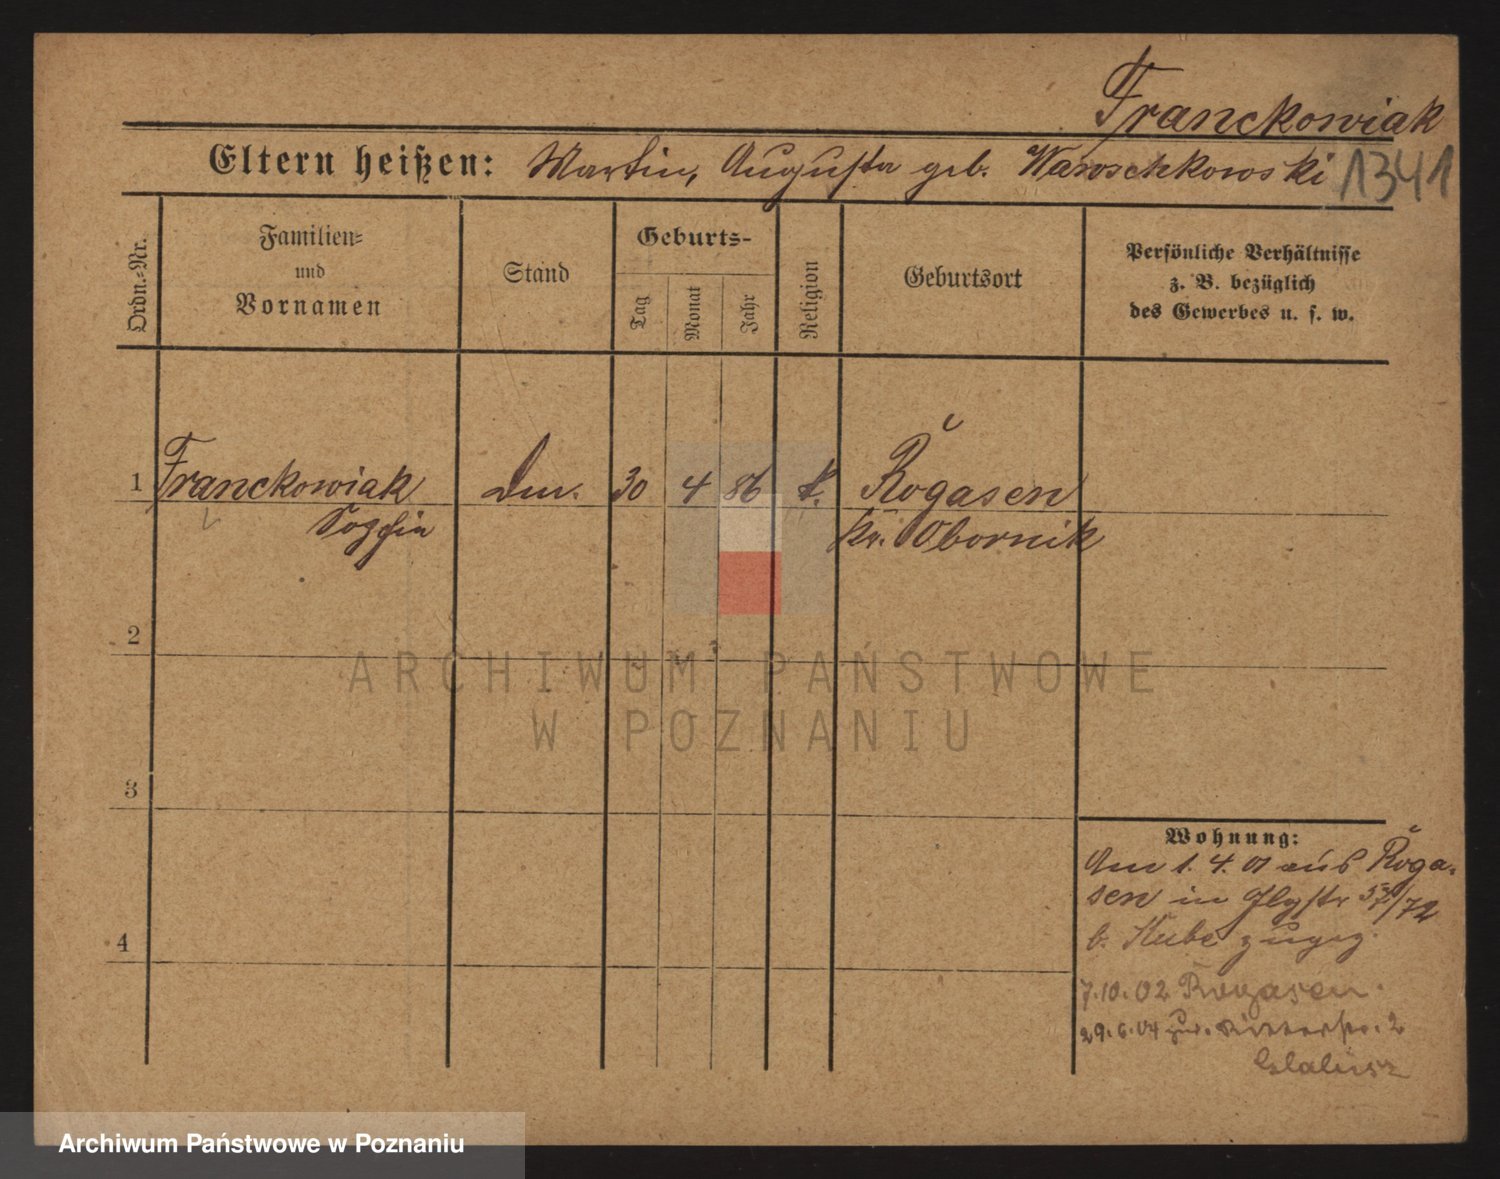 Franckowiak
Eltern heißen: Martin, Augusta geb. Waroschkowski 1341
Ordn.-Nr.
Familien-
und
Vornamen
Stand
Geburts-
Tag
Monat
Jahr
Religion
Geburtsort
Persönliche Verhältnisse
z. B. bezüglich
des Gewerbes u. s. w.
1 Franckowiak 30 4 86 k. Rogasen
Sophia Kr. Obornik
2
3
4
Wohnung:
Am 1. 4. 01 aus Roga-
sen in
b. Kube zugez.
7.10.02 Rogasen.
29.6.04 zur. Ritterstr. 2
ARCHIWUM PAŃSTWOWE
W POZNANIU
Archiwum Państwowe w Poznaniu